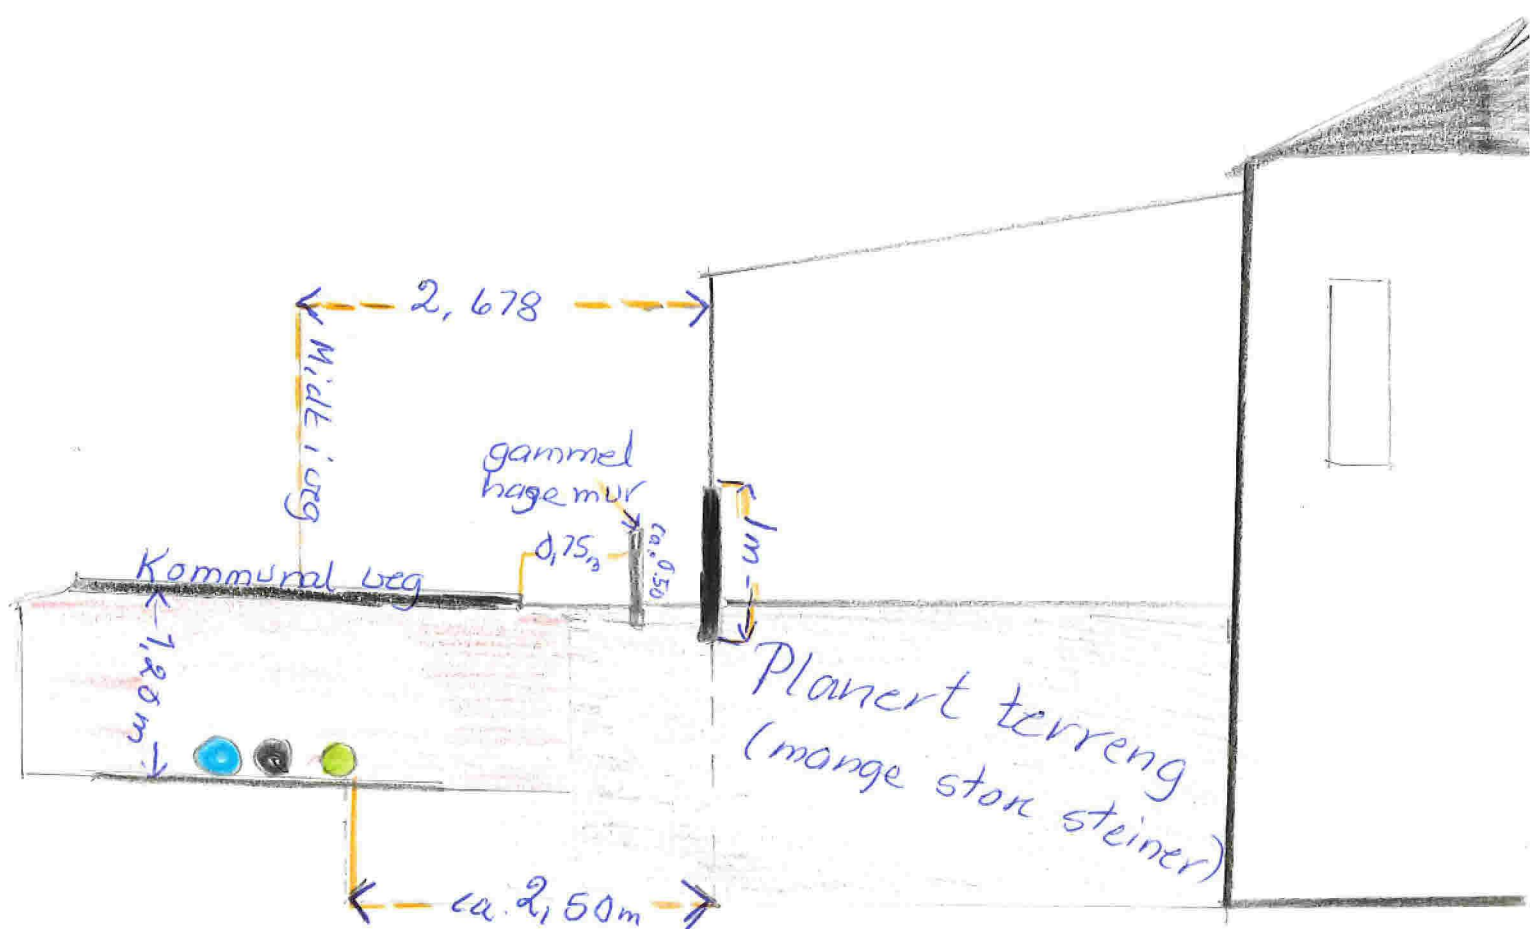 2,678
Midt i veg
gammel
hage mur
0,75
ca. 0.50
1m
Kommunal veg
1,20 m
Planert terreng
(mange store steiner)
ca. 2,50m